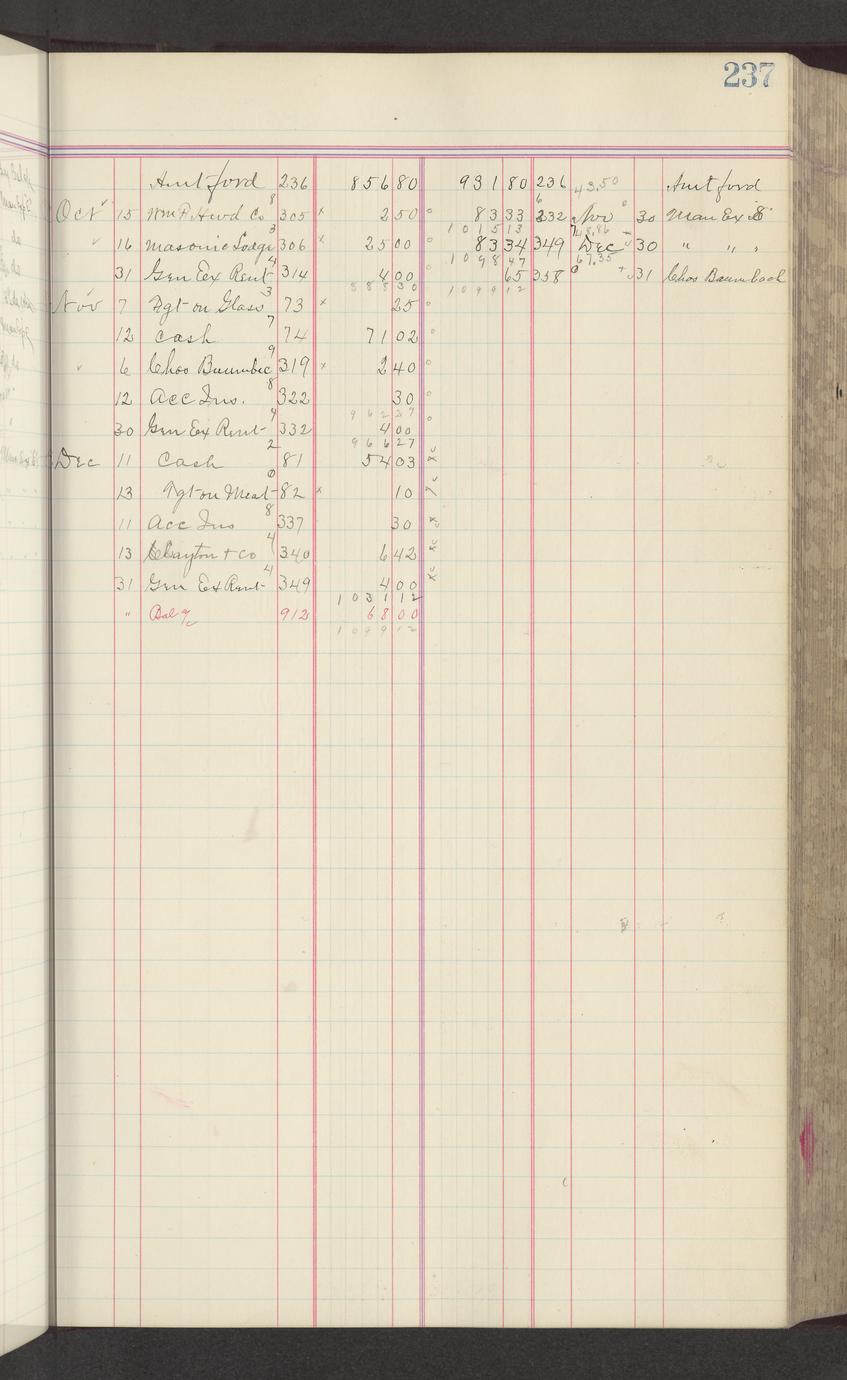 237
Amt ford 236 856 80 931 80 236 43.50 Amt ford
Oct 15 Wm P. Hwd Co 8 305 x 2 50 83 33 232 Nov 30 Man Ex
1015 13 48.86
16 Masonic Lodge 3 306 x 25 00 83 34 349 Dec 30 " " "
1098 47 67.35
31 Gen Ex Rent 4 314 4 00 65 358 31 Chas Baumbach
888 30 1099 12
Nov 7 Fgt on Glass 3 73 x 25
12 Cash 7 74 71 02
6 Chas Baumbac 9 319 x 2 40
12 Acc Ins. 8 322 30
962 27
30 Gen Ex Rent 4 332 4 00
966 27
Dec 11 Cash 2 81 54 03
13 Fgt on Meat 0 82 x 10
11 Acc Ins 8 337 30
13 Clayton + Co 4 340 6 42
31 Gen Ex Rent 4 349 4 00
1031 12
" Bal a/c 912 68 00
1099 12